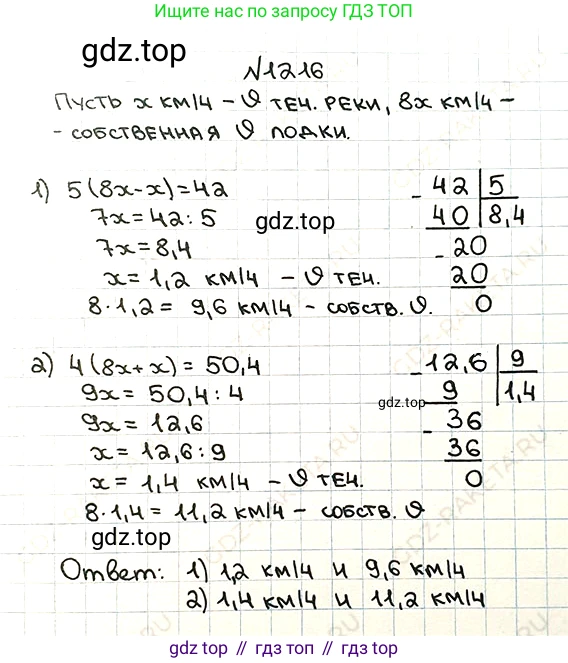 Ищите нас по запросу ГДЗ ТОП
gdz.top
№1216
Пусть x км/ч – ϑ теч. реки, 8x км/ч –
- собственная ϑ лодки.
1) 5(8x-x)=42
7x=42:5
7x=8,4
x=1,2 км/ч – ϑ теч.
8·1,2= 9,6 км/ч – собств. ϑ.
- 42 | 5
40 | 8,4
- 20
20
0
gdz.top
2) 4(8x+x)= 50,4
9x= 50,4:4
9x= 12,6
x= 12,6:9
x= 1,4 км/ч – ϑ теч.
8·1,4= 11,2 км/ч – собств. ϑ
- 12,6 | 9
9 | 1,4
- 36
36
0
gdz.top
gdz.top
Ответ: 1) 1,2 км/ч и 9,6 км/ч
2) 1,4 км/ч и 11,2 км/ч
gdz.top // гдз топ // гдз.топ